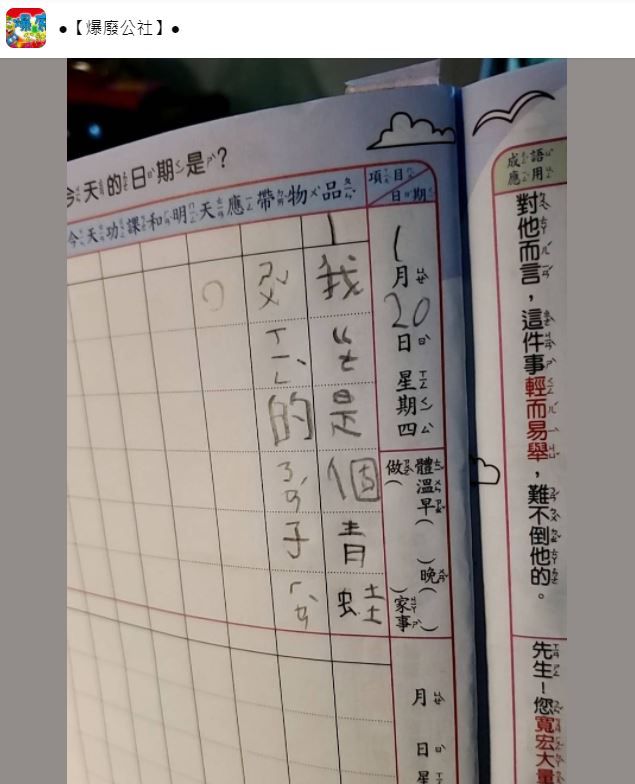 ●【爆廢公社】●
今天的日期是？
項目
日期
1月20日星期四
體溫早（　）晚（　）
做家事
月
日
星
品
物
帶
應
天
明
和
課
功
天
今
1
我
是個青蛙
的
子
成語應用
對他而言，這件事輕而易舉，難不倒他的。
先生！您寬宏大量